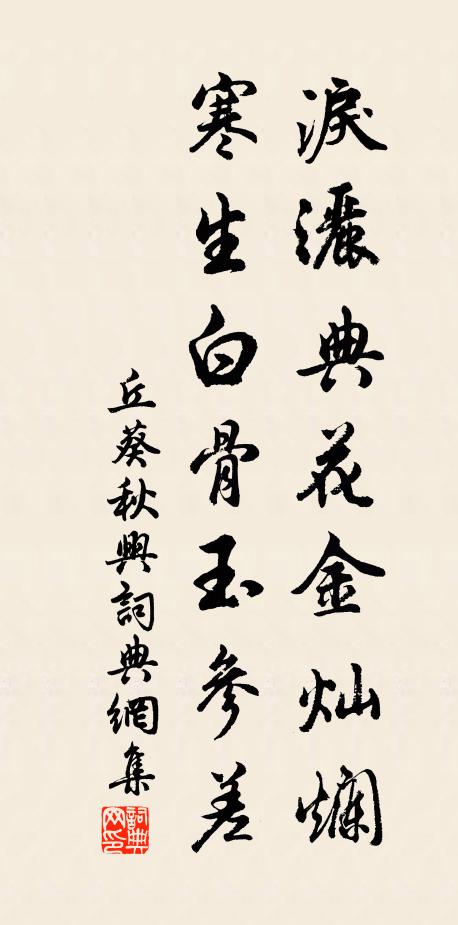 淚灑典花金灿爛
寒生白骨玉參差
丘葵秋興詞典網集
詞典网印